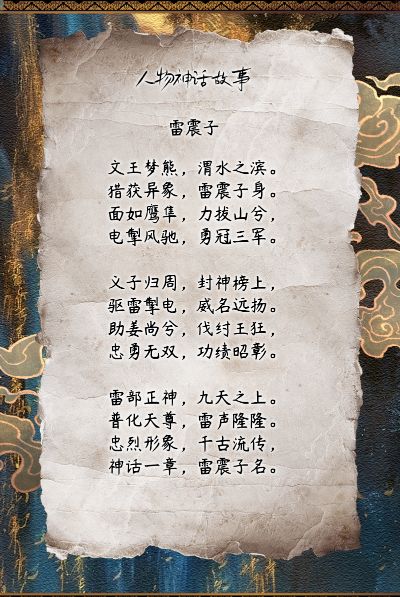 人物神话故事
雷震子
文王梦熊，渭水之滨。
猎获异象，雷震子身。
面如鹰隼，力拔山兮，
电掣风驰，勇冠三军。
义子归周，封神榜上，
驱雷掣电，威名远扬。
助姜尚兮，伐纣王狂，
忠勇无双，功绩昭彰。
雷部正神，九天之上。
普化天尊，雷声隆隆。
忠烈形象，千古流传，
神话一章，雷震子名。